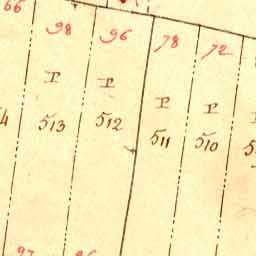 66 98 96 78 72
P P P P
513 512 511 510